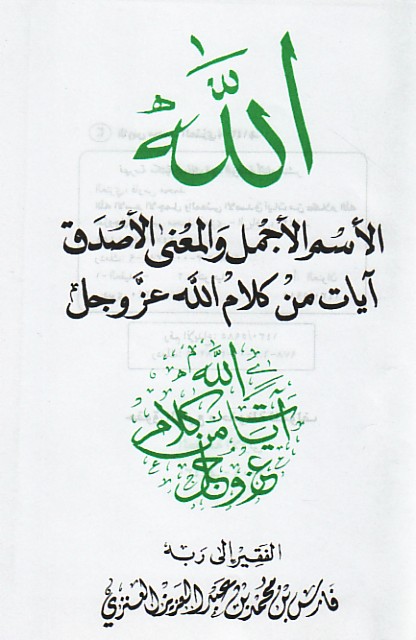 الله
الأسم الأجمل والمعنى الأصدق
آيات من كلام الله عز وجل
الله
آيات من كلام
عز وجل
الفقير إلى ربه
فارس بن محمد بن عبد العزيز العنزي